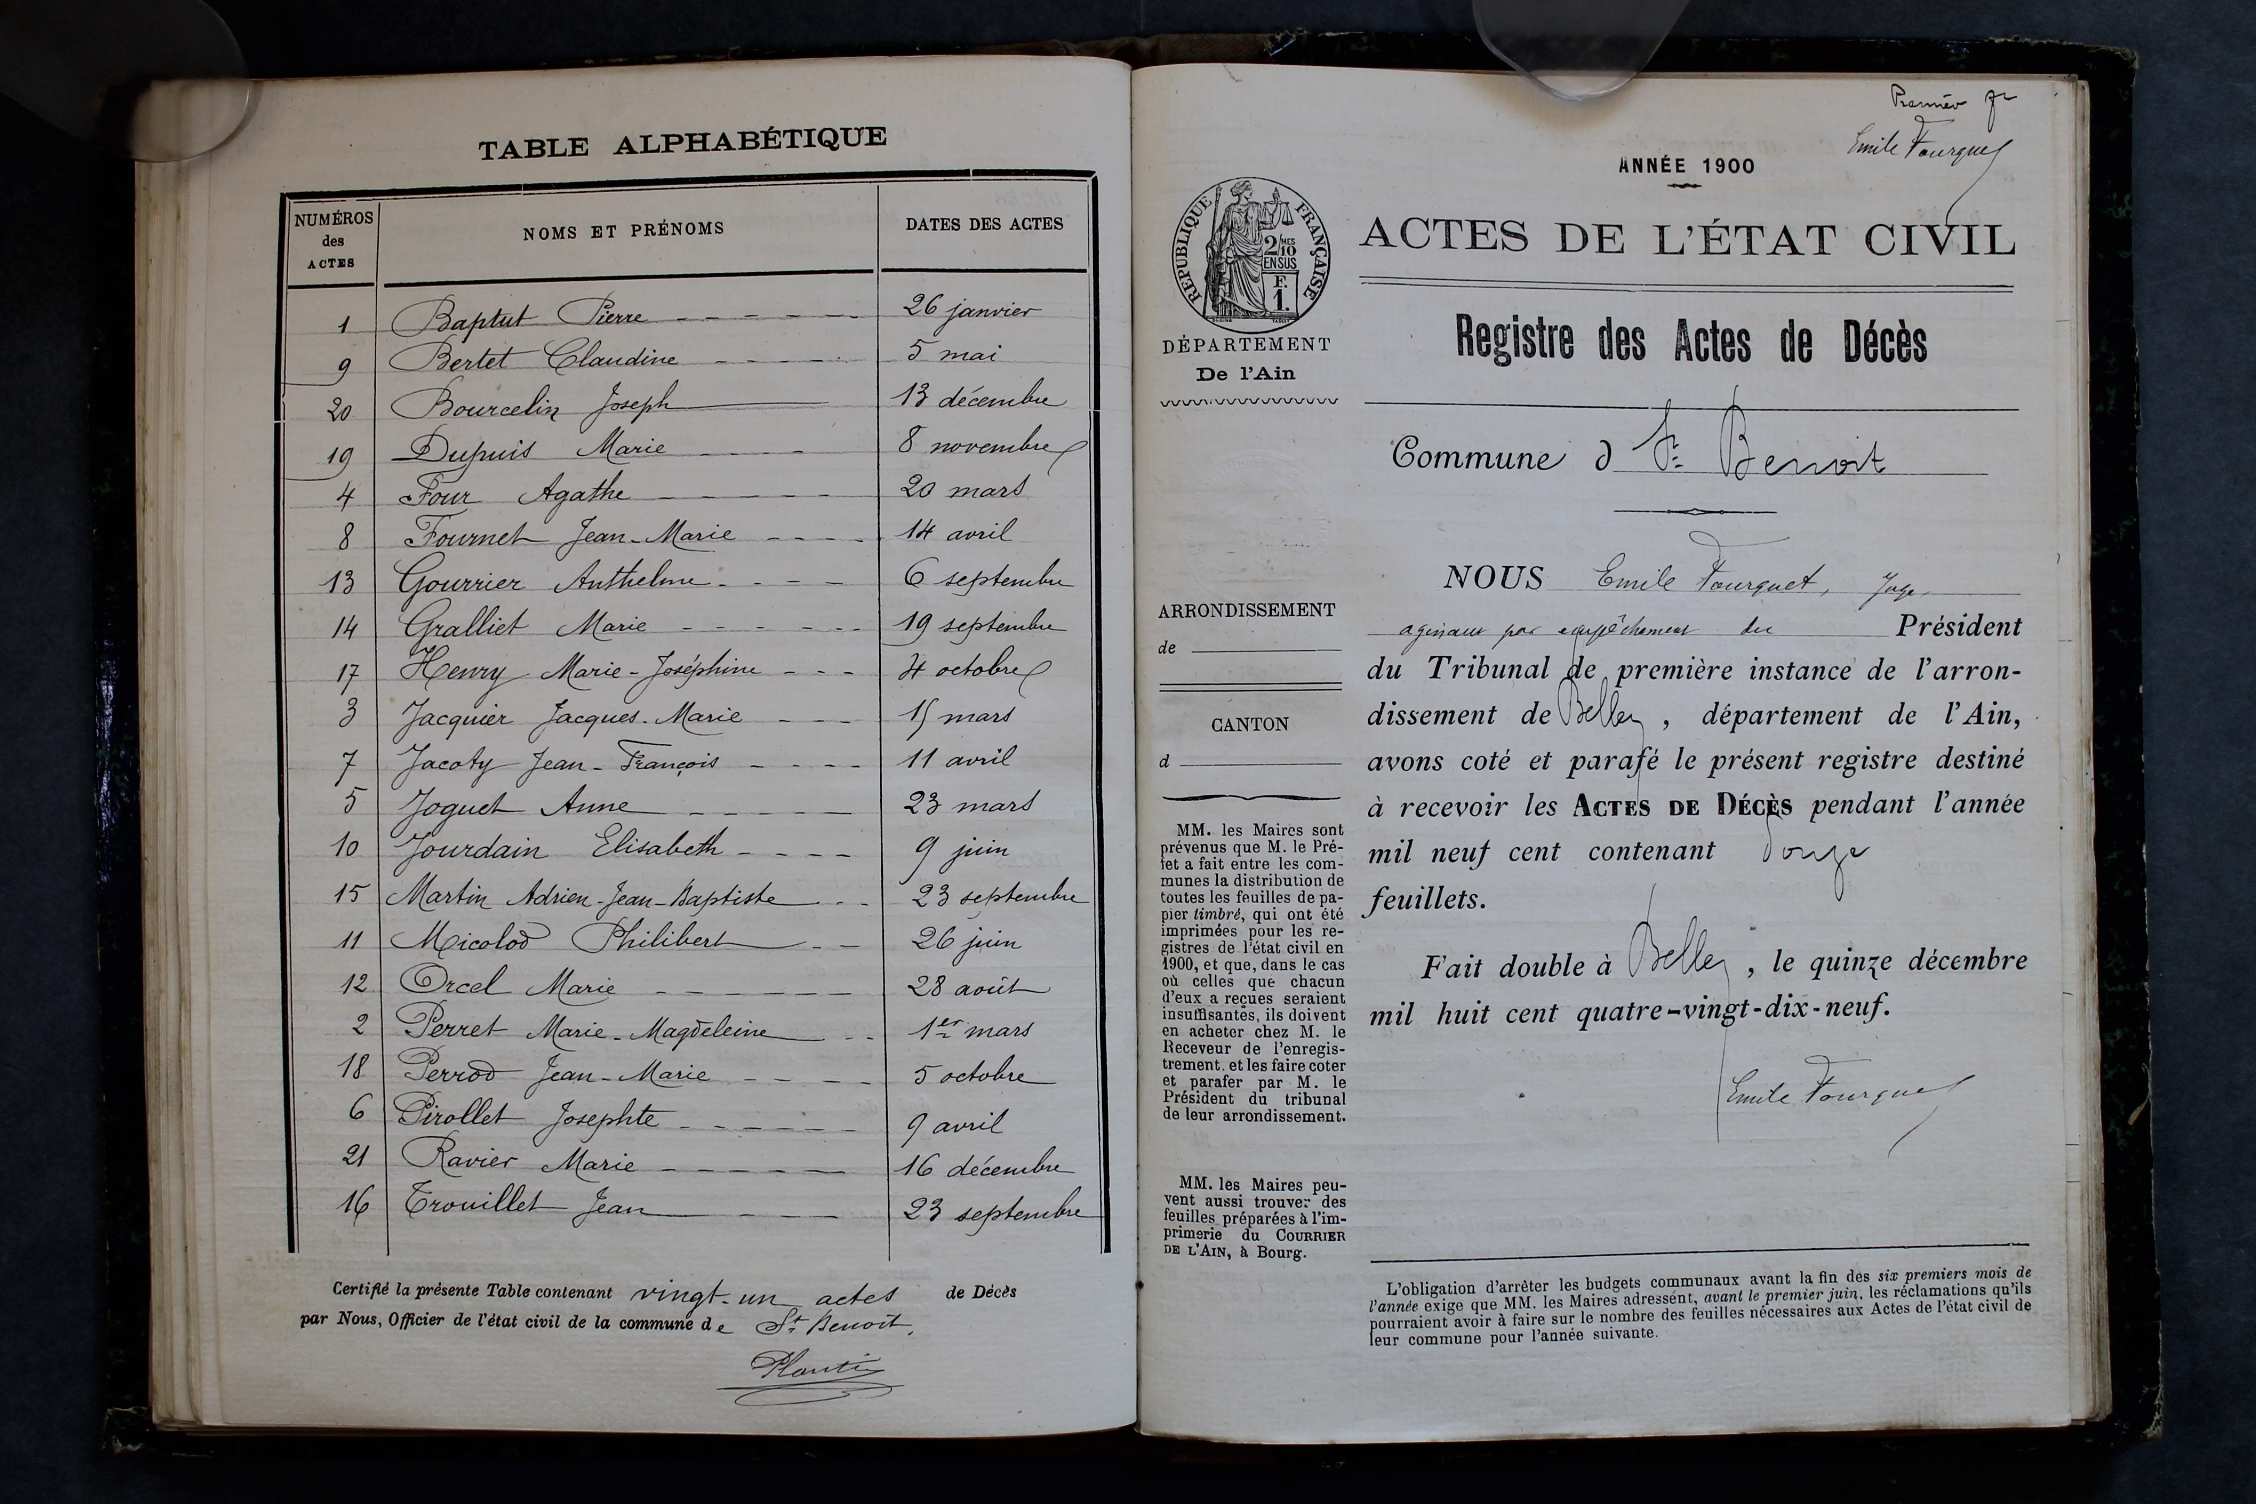 TABLE ALPHABÉTIQUE
NUMÉROS des ACTES NOMS ET PRÉNOMS DATES DES ACTES
1 Baptut Pierre 26 janvier
9 Bertet Claudine 5 mai
20 Bourcelin Joseph 13 décembre
19 Dupuis Marie 8 novembre
4 Four Agathe 20 mars
8 Fournet Jean-Marie 14 avril
13 Gourrier Anthelme 6 septembre
14 Gralliet Marie 19 septembre
17 Henry Marie-Joséphine 4 octobre
3 Jacquier Jacques-Marie 15 mars
7 Jacoty Jean-François 11 avril
5 Joguet Anne 23 mars
10 Jourdain Elisabeth 9 juin
15 Martin Adrien-Jean-Baptiste 23 septembre
11 Micolod Philibert 26 juin
12 Orcel Marie 28 août
2 Perret Marie-Magdeleine 1er mars
18 Perrod Jean-Marie 5 octobre
6 Pirollet Josephte 9 avril
21 Ravier Marie 16 décembre
16 Trouillet Jean 23 septembre
Certifié la présente Table contenant vingt-un actes de Décès
par Nous, Officier de l'état civil de la commune de St Benoit.
Premier
Emile Fourquet
ANNÉE 1900
RÉPUBLIQUE FRANÇAISE
2/10 MES
EN SUS
F.
1.
ACTES DE L'ÉTAT CIVIL
DÉPARTEMENT
De l'Ain
Registre des Actes de Décès
Commune d St Benoit
ARRONDISSEMENT
de
CANTON
d
MM. les Maires sont
prévenus que M. le Pré-
fet a fait entre les com-
munes la distribution de
toutes les feuilles de pa-
pier timbré, qui ont été
imprimées pour les re-
gistres de l'état civil en
1900, et que, dans le cas
où celles que chacun
d'eux a reçues seraient
insuffisantes, ils doivent
en acheter chez M. le
Receveur de l'enregis-
trement. et les faire coter
et parafer par M. le
Président du tribunal
de leur arrondissement.
MM. les Maires peu-
vent aussi trouver des
feuilles préparées à l'im-
primerie du COURRIER
DE L'AIN, à Bourg.
NOUS Emile Fourquet, Juge,
agissant par empêchement du Président
du Tribunal de première instance de l'arron-
dissement de Belley, département de l'Ain,
avons coté et parafé le présent registre destiné
à recevoir les ACTES DE DÉCÈS pendant l'année
mil neuf cent contenant douze
feuillets.
Fait double à Belley, le quinze décembre
mil huit cent quatre-vingt-dix-neuf.
Emile Fourquet
L'obligation d'arrêter les budgets communaux avant la fin des six premiers mois de
l'année exige que MM. les Maires adressent, avant le premier juin, les réclamations qu'ils
pourraient avoir à faire sur le nombre des feuilles nécessaires aux Actes de l'état civil de
leur commune pour l'année suivante.